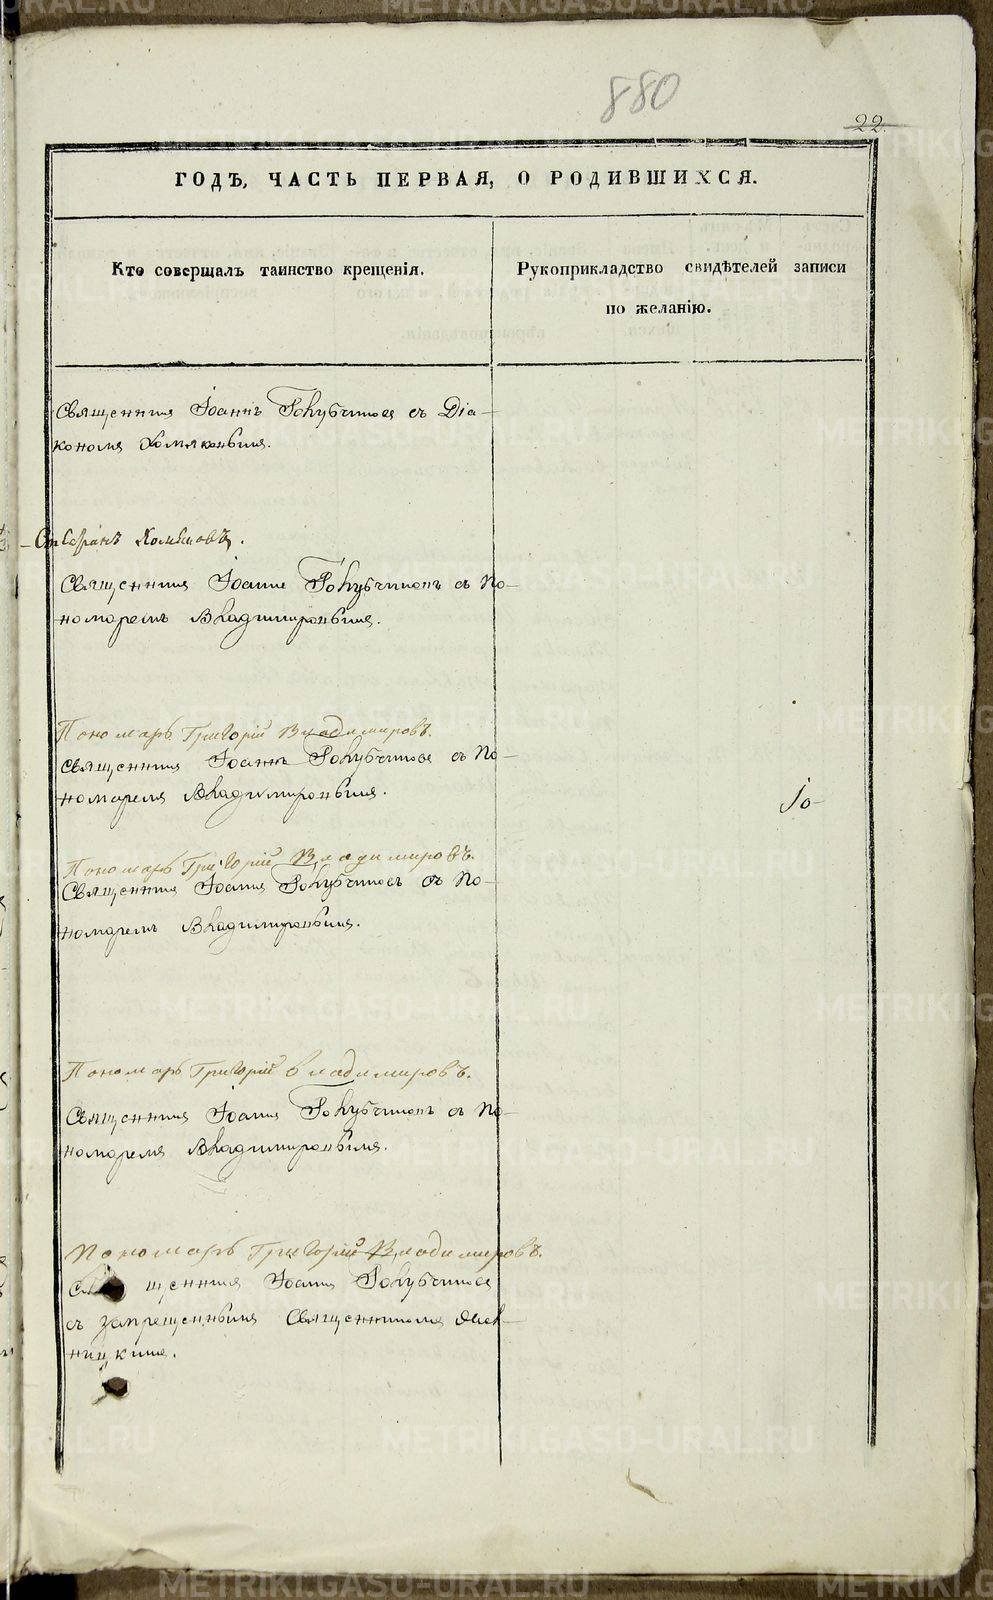 880
22.
ГОДЪ, ЧАСТЬ ПЕРВАЯ, О РОДИВШИХСЯ.
Кто совершалъ таинство крещенія.
Рукоприкладство свидѣтелей записи
по желанію.
Священникъ Іоаннъ Голубчиковъ съ Діа-
кономъ Хомяковымъ.
Священникъ Іоаннъ Голубчиковъ съ По-
номаремъ Владимировымъ.
Пономарь Григорій Владимировъ.
Священникъ Іоаннъ Голубчиковъ съ По-
номаремъ Владимировымъ.
Пономарь Григорій Владимировъ.
Священникъ Іоаннъ Голубчиковъ съ По-
номаремъ Владимировымъ.
Пономарь Григорій Владимировъ.
Священникъ Іоаннъ Голубчиковъ съ По-
номаремъ Владимировымъ.
Пономарь Григорій Владимировъ.
Священникъ Іоаннъ Голубчиковъ
съ запрещеннымъ Священникомъ
METRIKI.GASO-URAL.RU